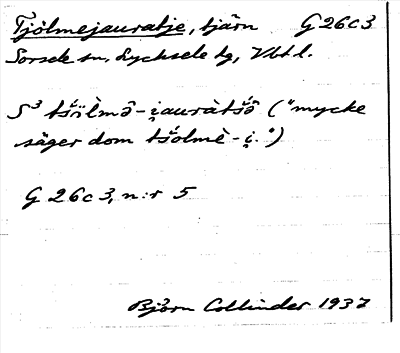 Tjölmejauratje, tjärn G 26c3
Sorsele sn, Lycksele lg, Vbtl.
S³ tš́ȯ̀lmə̂-i̯auràtš́ə̂ ("mycke
säger dom tš́olmè-i̯.")
G 26c3, n:r 5
Björn Collinder 1937